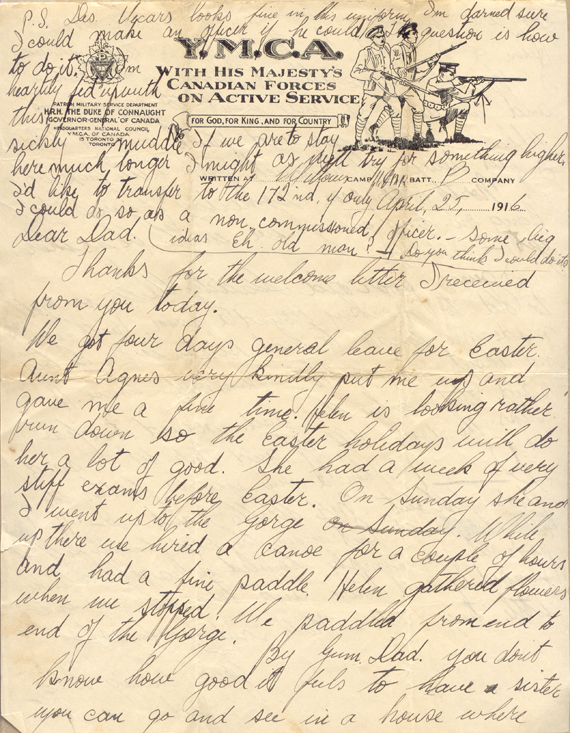 P.S. Des. Vicars looks fine in his uniform. I'm darned sure
I could make an officer if he could. question is how
to do it. I'm
heartily fed up with
this
sickly middle. If we are to stay
here much longer I might as well try for something higher.
I'd like to transfer to the 172nd, if only
I could do so as a non commissioned officer. – Some big
ideas Eh. old man? – Do you think I could do it?
Y.M.C.A.
WITH HIS MAJESTY'S
CANADIAN FORCES
ON ACTIVE SERVICE
FOR GOD, FOR KING, AND FOR COUNTRY
PATRON MILITARY SERVICE DEPARTMENT
H.R.H. THE DUKE OF CONNAUGHT
GOVERNOR-GENERAL OF CANADA
HEADQUARTERS NATIONAL COUNCIL
Y.M.C.A. OF CANADA
15 TORONTO ST.
TORONTO
WRITTEN AT Willows CAMP BATT. B COMPANY
April, 25, 1916.
Dear Dad.
Thanks for the welcome letter I received
from you today.
We got four days general leave for Easter.
Aunt Agnes very kindly put me up and
gave me a fine time. Helen is looking rather
run down so the Easter holidays will do
her a lot of good. She had a week of very
stiff exams before Easter. On Sunday she and
I went up to the Gorge on Sunday. While
up there we hired a canoe for a couple of hours
and had a fine paddle. Helen gathered flowers
when we stopped. We paddled from end to
end of the Gorge.
By Gum, Dad. you don't
know how good it feels to have a sister
you can go and see in a house where